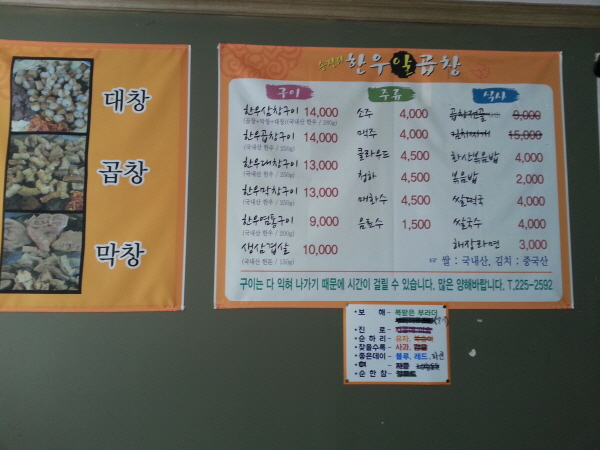 대창
곱창
막창
한우알곱창
구이
한우삼창구이 14,000
한우곱창구이 14,000
(국내산 한우 / 250g)
한우대창구이 13,000
(국내산 한우 / 250g)
한우막창구이 13,000
(국내산 한우 / 250g)
한우염통구이 9,000
(국내산 한우 / 200g)
생삼겹살 10,000
(국내산 한돈 / 150g)
주류
소주 4,000
맥주 4,000
클라우드 4,500
청하 4,500
매화수 4,500
음료수 1,500
식사
곱창전골 9,000
김치찌개 15,000
화산볶음밥 4,000
볶음밥 2,000
쌀떡국 4,000
쌀국수 4,000
해장라면 3,000
☞ 쌀 : 국내산, 김치 : 중국산
구이는 다 익혀 나가기 때문에 시간이 걸릴 수 있습니다. 많은 양해바랍니다. T.225-2592
• 보 해 - 복받은 부라더
• 진 로 -
• 순 하 리 - 유자,
• 잎새 - 사과,
• 좋은데이 - 블루, 레드,
• 순 한 참 -